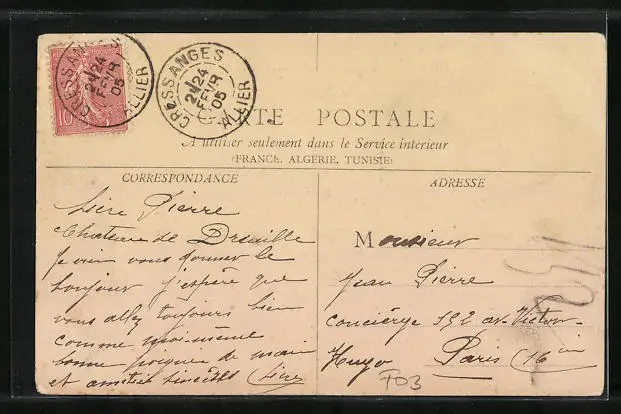 CRESSANGES
2E 24
FEVR
05
ALLIER
10
CRESSANGES
2E 24
FEVR
05
ALLIER
CARTE POSTALE
A utiliser seulement dans le Service intérieur
(FRANCE, ALGERIE, TUNISIE)
CORRESPONDANCE
Pierre
Chateau de Dreuille
Je vien vous donner le
bonjour j'espère que
vous allez toujours bien
comme moi-même
bonne poignée de main
et amitié
ADRESSE
Monsieur
Jean Pierre
Concièrge 152 av. Victor-
Hugo Paris (16 im
FD3